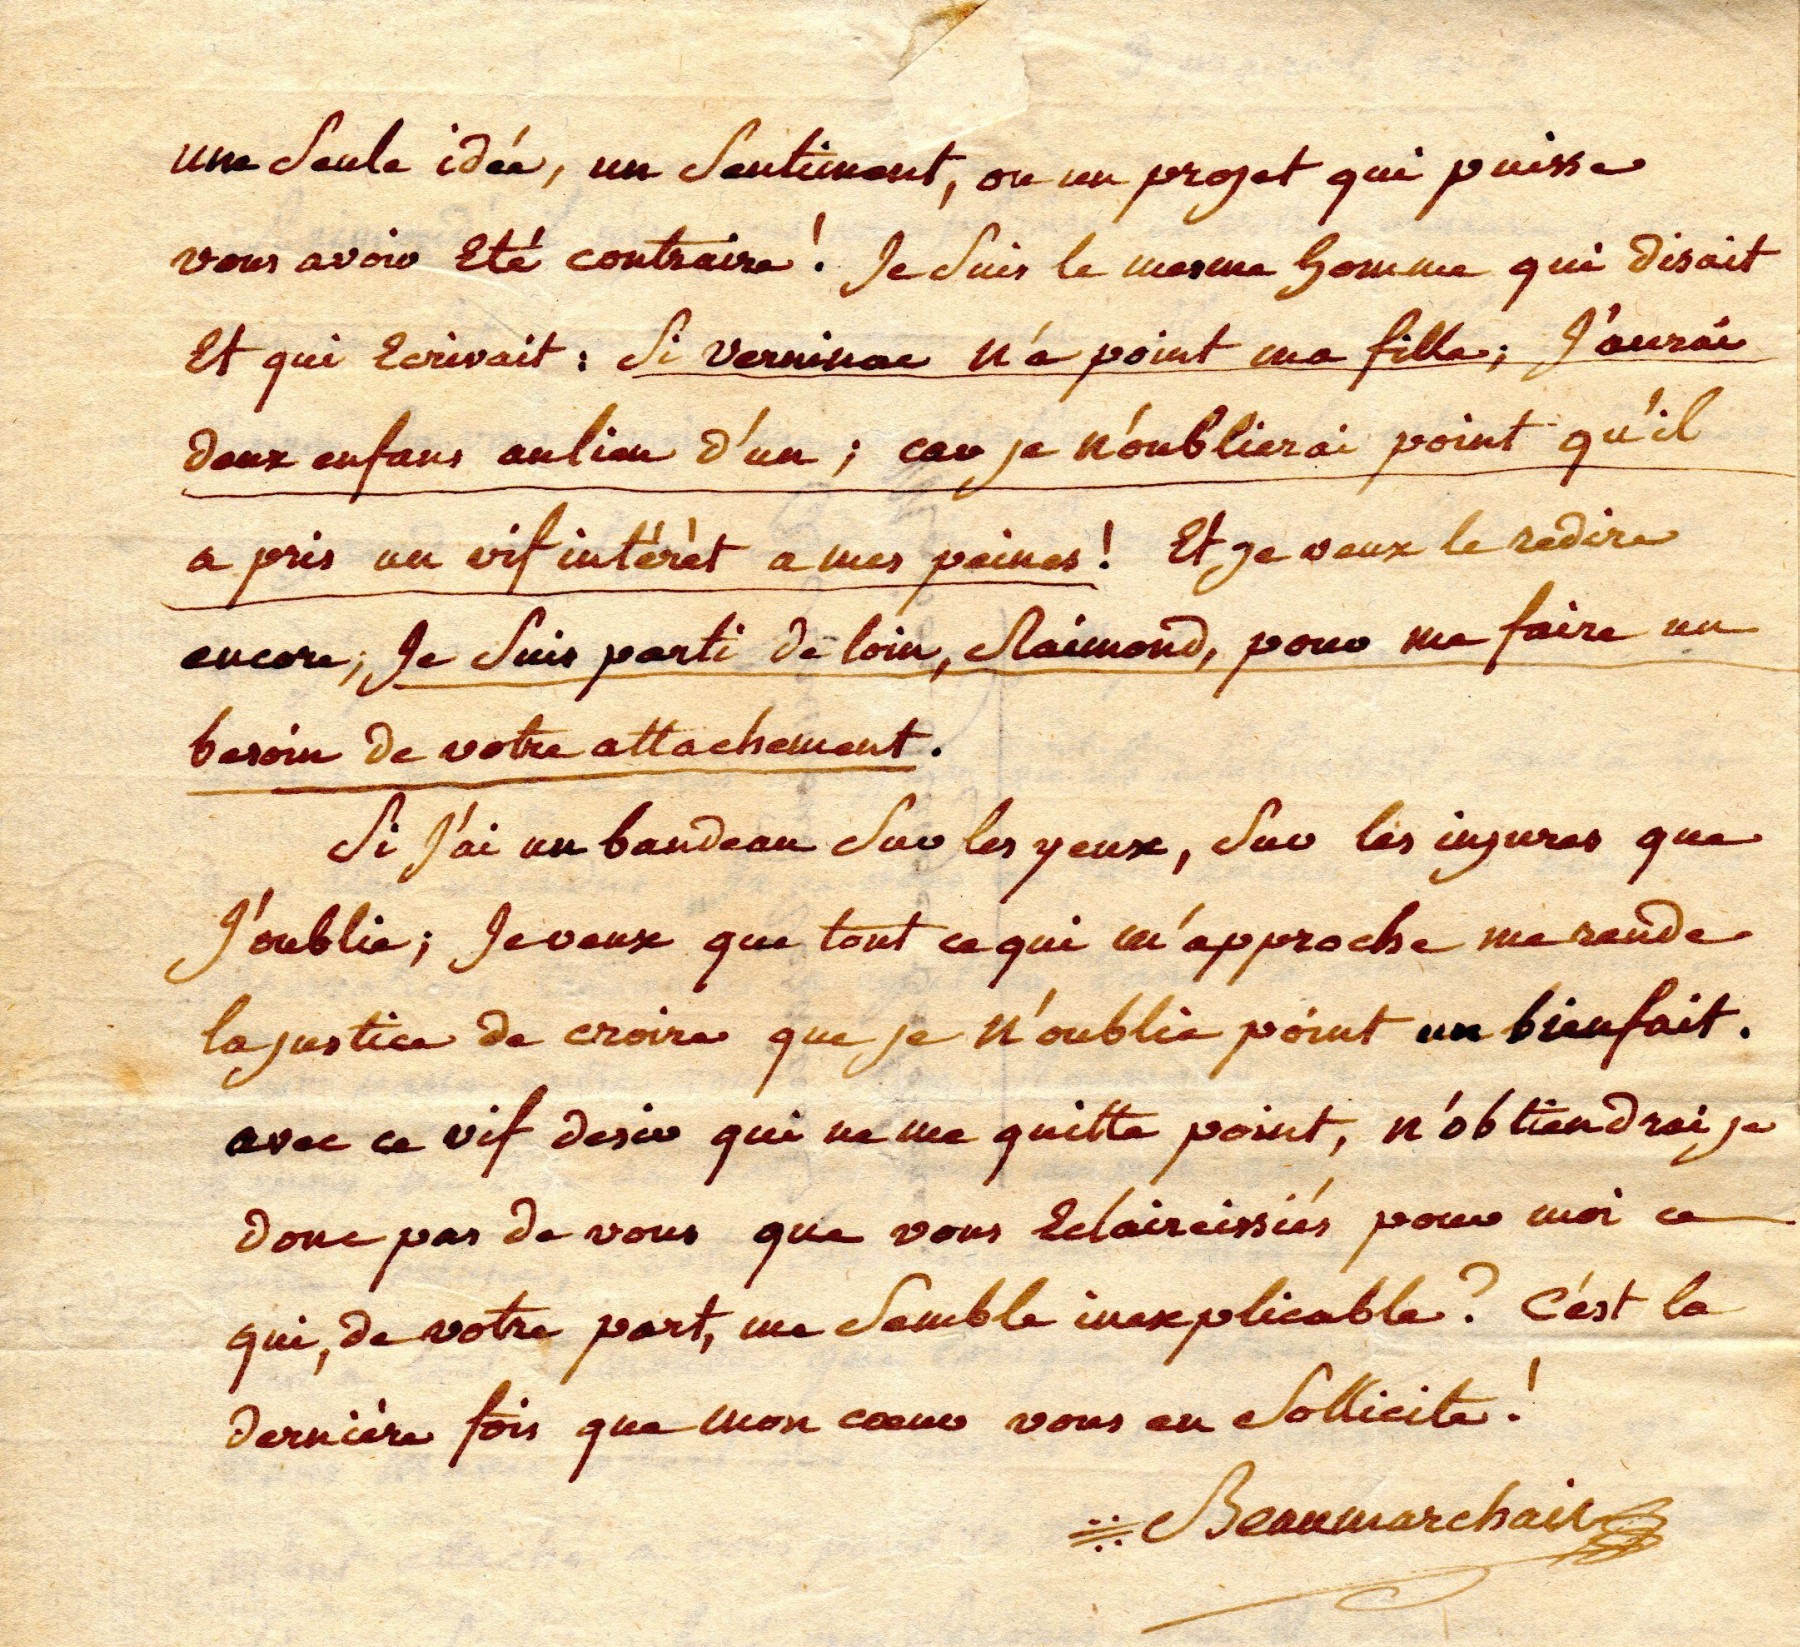 une Seule idée, un Sentiment, ou un projet qui puisse
vous avoir Eté contraire! Je Suis le mesme homme qui disait
Et qui Ecrivait: Si verninac n'a point ma fille; J'aurai
deux enfans aulieu d'un; car je n'oublierai point qu'il
a pris un vif intérèt a mes peines! Et je veux le redire
encore; Je Suis parti de loin, Raimond, pour me faire un
besoin de votre attachement.
Si J'ai un bandeau Sur les yeux, Sur les injures que
J'oublie; Je veux que tout ce qui m'approche me rende
la justice de croire que je n'oublie point un bienfait.
avec ce vif desir qui ne me quitte point, n'obtiendrai je
donc pas de vous que vous Eclaircissiés pour moi ce
qui, de votre part, me Semble inexplicable? C'est la
dernière fois que mon cœur vous en Sollicite!
Beaumarchais